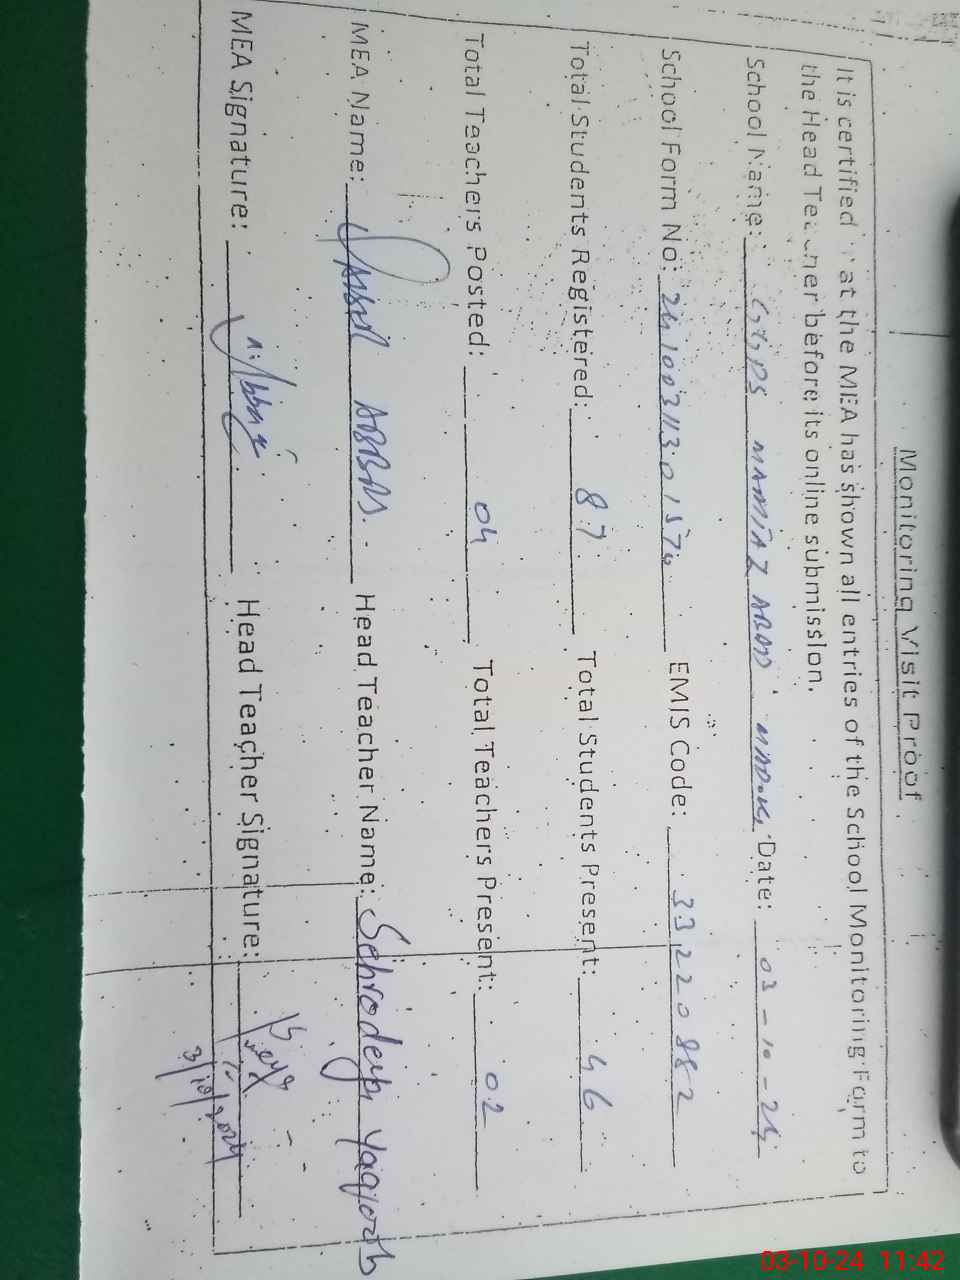 Monitoring Visit Proof
It is certified at the MEA has shown all entries of the School Monitoring Form to
the Head Teacher before its online submission.
School Name: MAMTAZ ABAD Date: 03-10-24
School Form No: EMIS Code: 33220882
Total Students Registered: 87 Total Students Present: 46
Total Teachers Posted: 04 Total Teachers Present: 02
MEA Name: ABBAS. Head Teacher Name: Yaqoob
MEA Signature: Head Teacher Signature:
3/10/2024
03-10-24 11:42